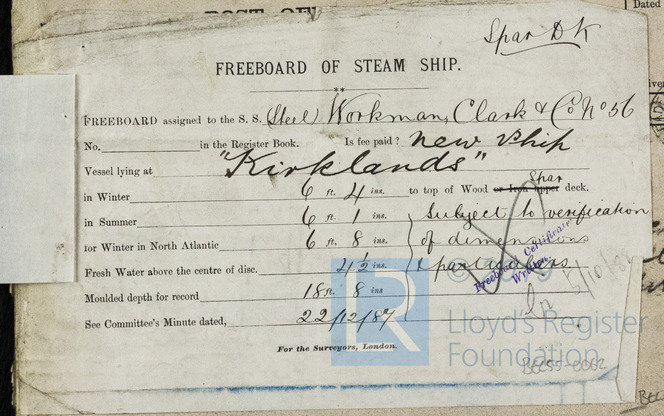 Dated
Spar Dk
FREEBOARD OF STEAM SHIP.
FREEBOARD assigned to the S. S. (Steel) Workman, Clark & Co No 56
No. in the Register Book. Is fee paid? New Ship
Vessel lying at "Kirklands"
in Winter 6 ft. 4 ins. to top of Wood or Iron upper Spar deck.
in Summer 6 ft. 1 ins. Subject to verification
for Winter in North Atlantic 6 ft. 8 ins. of dimensions
Fresh Water above the centre of disc. 4½ ins. & particulars
Freeboard Certificate
Written
Moulded depth for record 18 ft. 8 ins.
See Committee's Minute dated, 22/12/87
For the Surveyors, London.
Lloyd's Register
Foundation